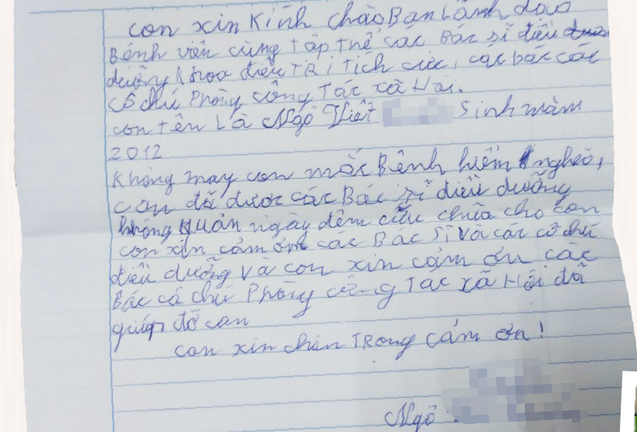 con xin Kính chào Ban Lãnh đạo
Bệnh viện cùng tập thể các Bác sĩ điều dưỡng
dưỡng Khoa điều TRị Tích cực, các bác các
cô chú Phòng công Tác xã Hội.
con tên Là Ngô Viết Sinh năm
2012
Không may con mắc Bệnh hiểm nghèo,
con đã được các Bác sĩ điều dưỡng
không quản ngày đêm cứu chữa cho con
con xin cảm ơn các Bác Sĩ và các cô chú
điều dưỡng và con xin cảm ơn các
Bác cô chú Phòng công Tác xã Hội đã
giúp đỡ con
con xin chân TRọng cảm ơn!
Ngô